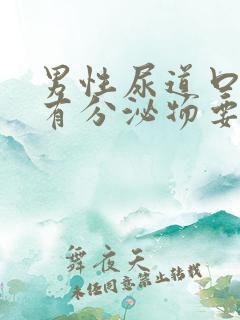 男性尿道口
有分泌物要
舞夜天
未经同意禁止转载